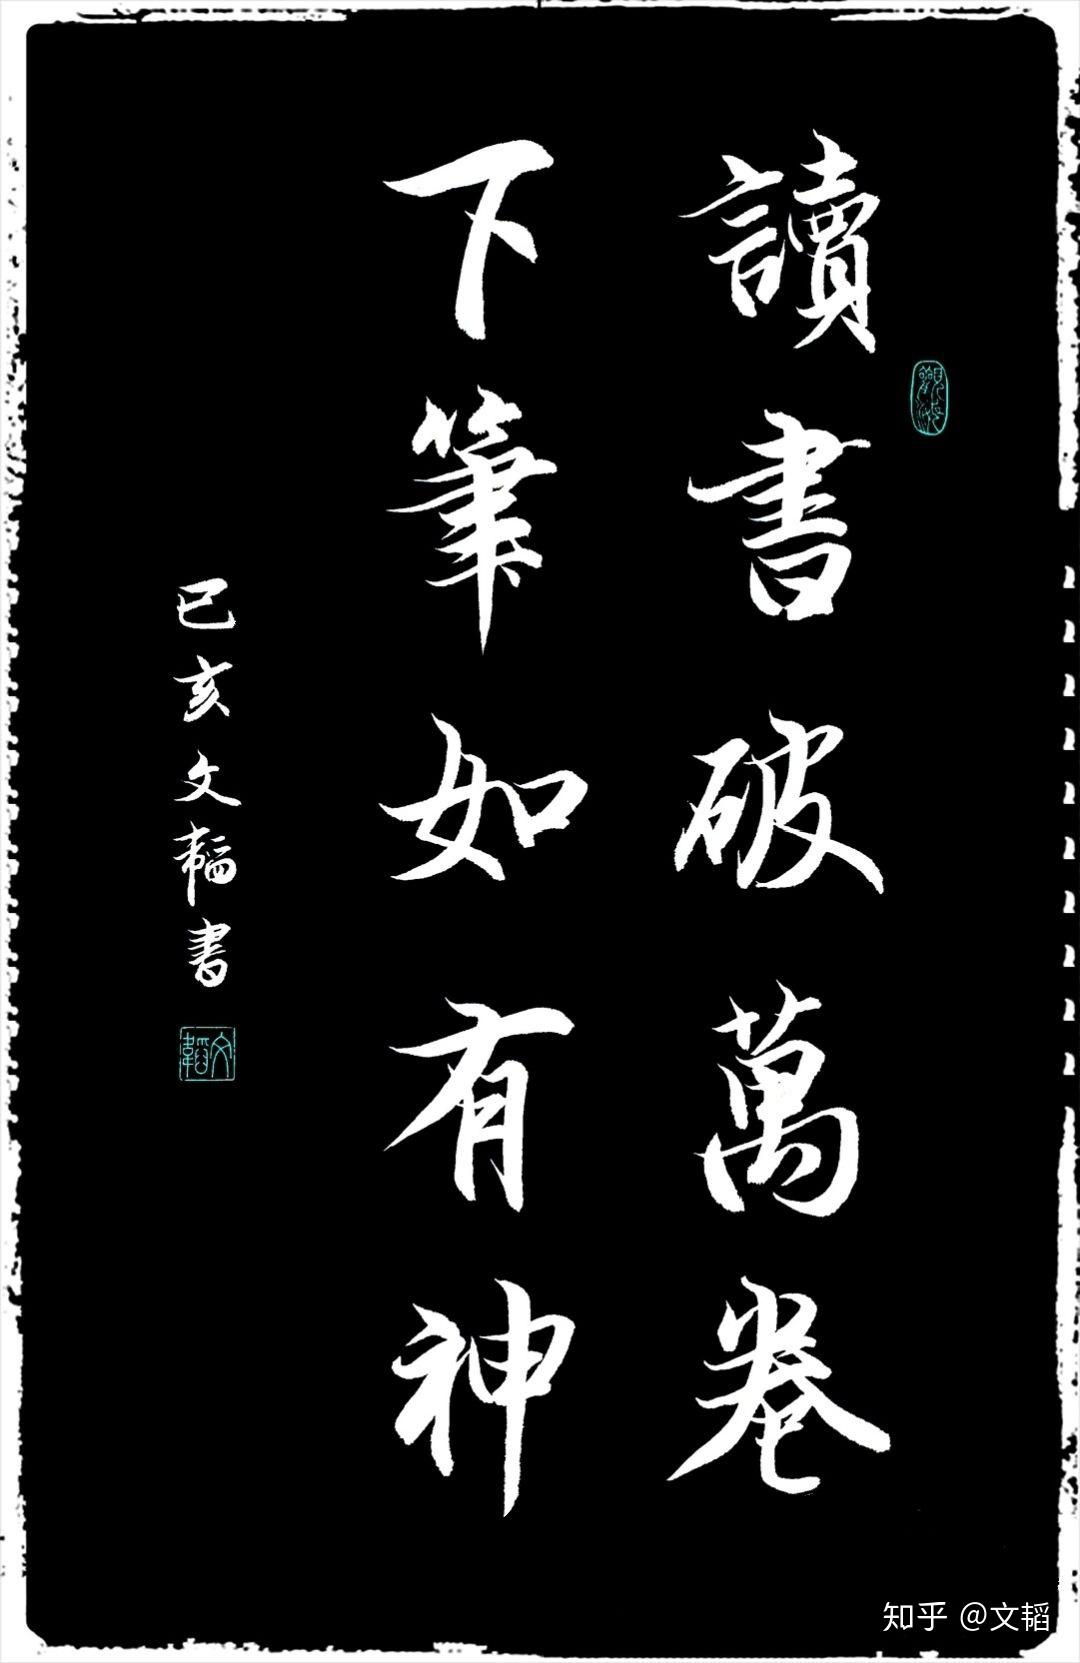 讀書破萬卷
下筆如有神
己亥文韬書
文韬
知乎 @文韬